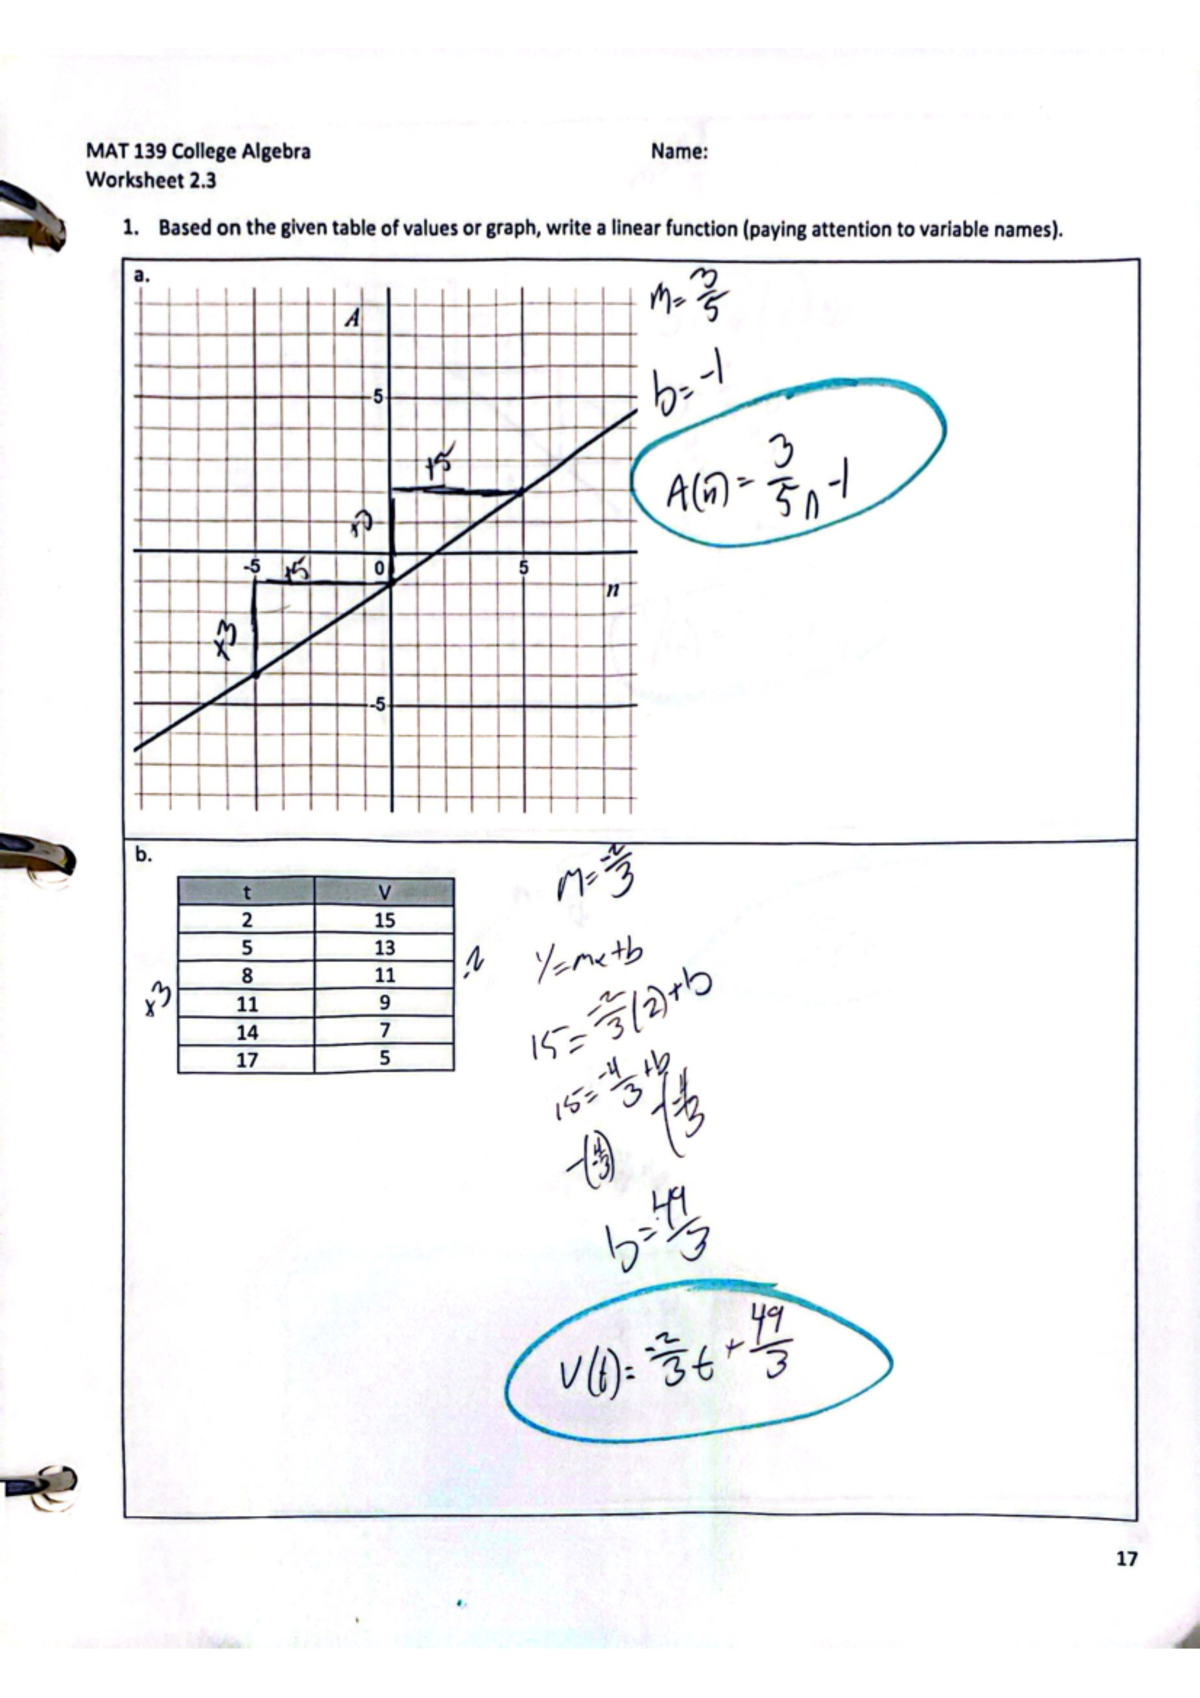 MAT 139 College Algebra
Name:
Worksheet 2.3
1. Based on the given table of values or graph, write a linear function (paying attention to variable names).
a.
A
5
-5
0
5
n
-5
+5
+3
+5
+3
m= 3/5
b= -1
A(n) = 3/5 n -1
b.
t V
2 15
5 13
8 11
11 9
14 7
17 5
+3
-2
m= -2/3
y=mx+b
15= -2/3 (2)+b
15= -4/3 +b
-(-4/3) -(-4/3)
b= 49/3
V(t)= -2/3 t + 49/3
17